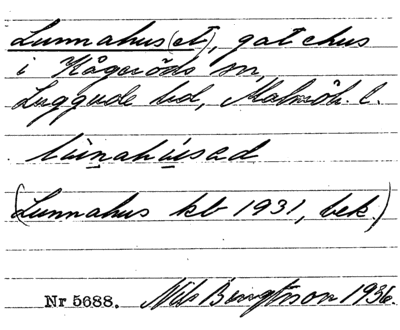 Lunnahus(et), gatehus
i Kågeröds sn,
Luggude hd, Malmöh. l.
lùnahùsəd
(Lunnahus kb 1931, bek.)
Nr 5688. Nils Bengtsson 1936.